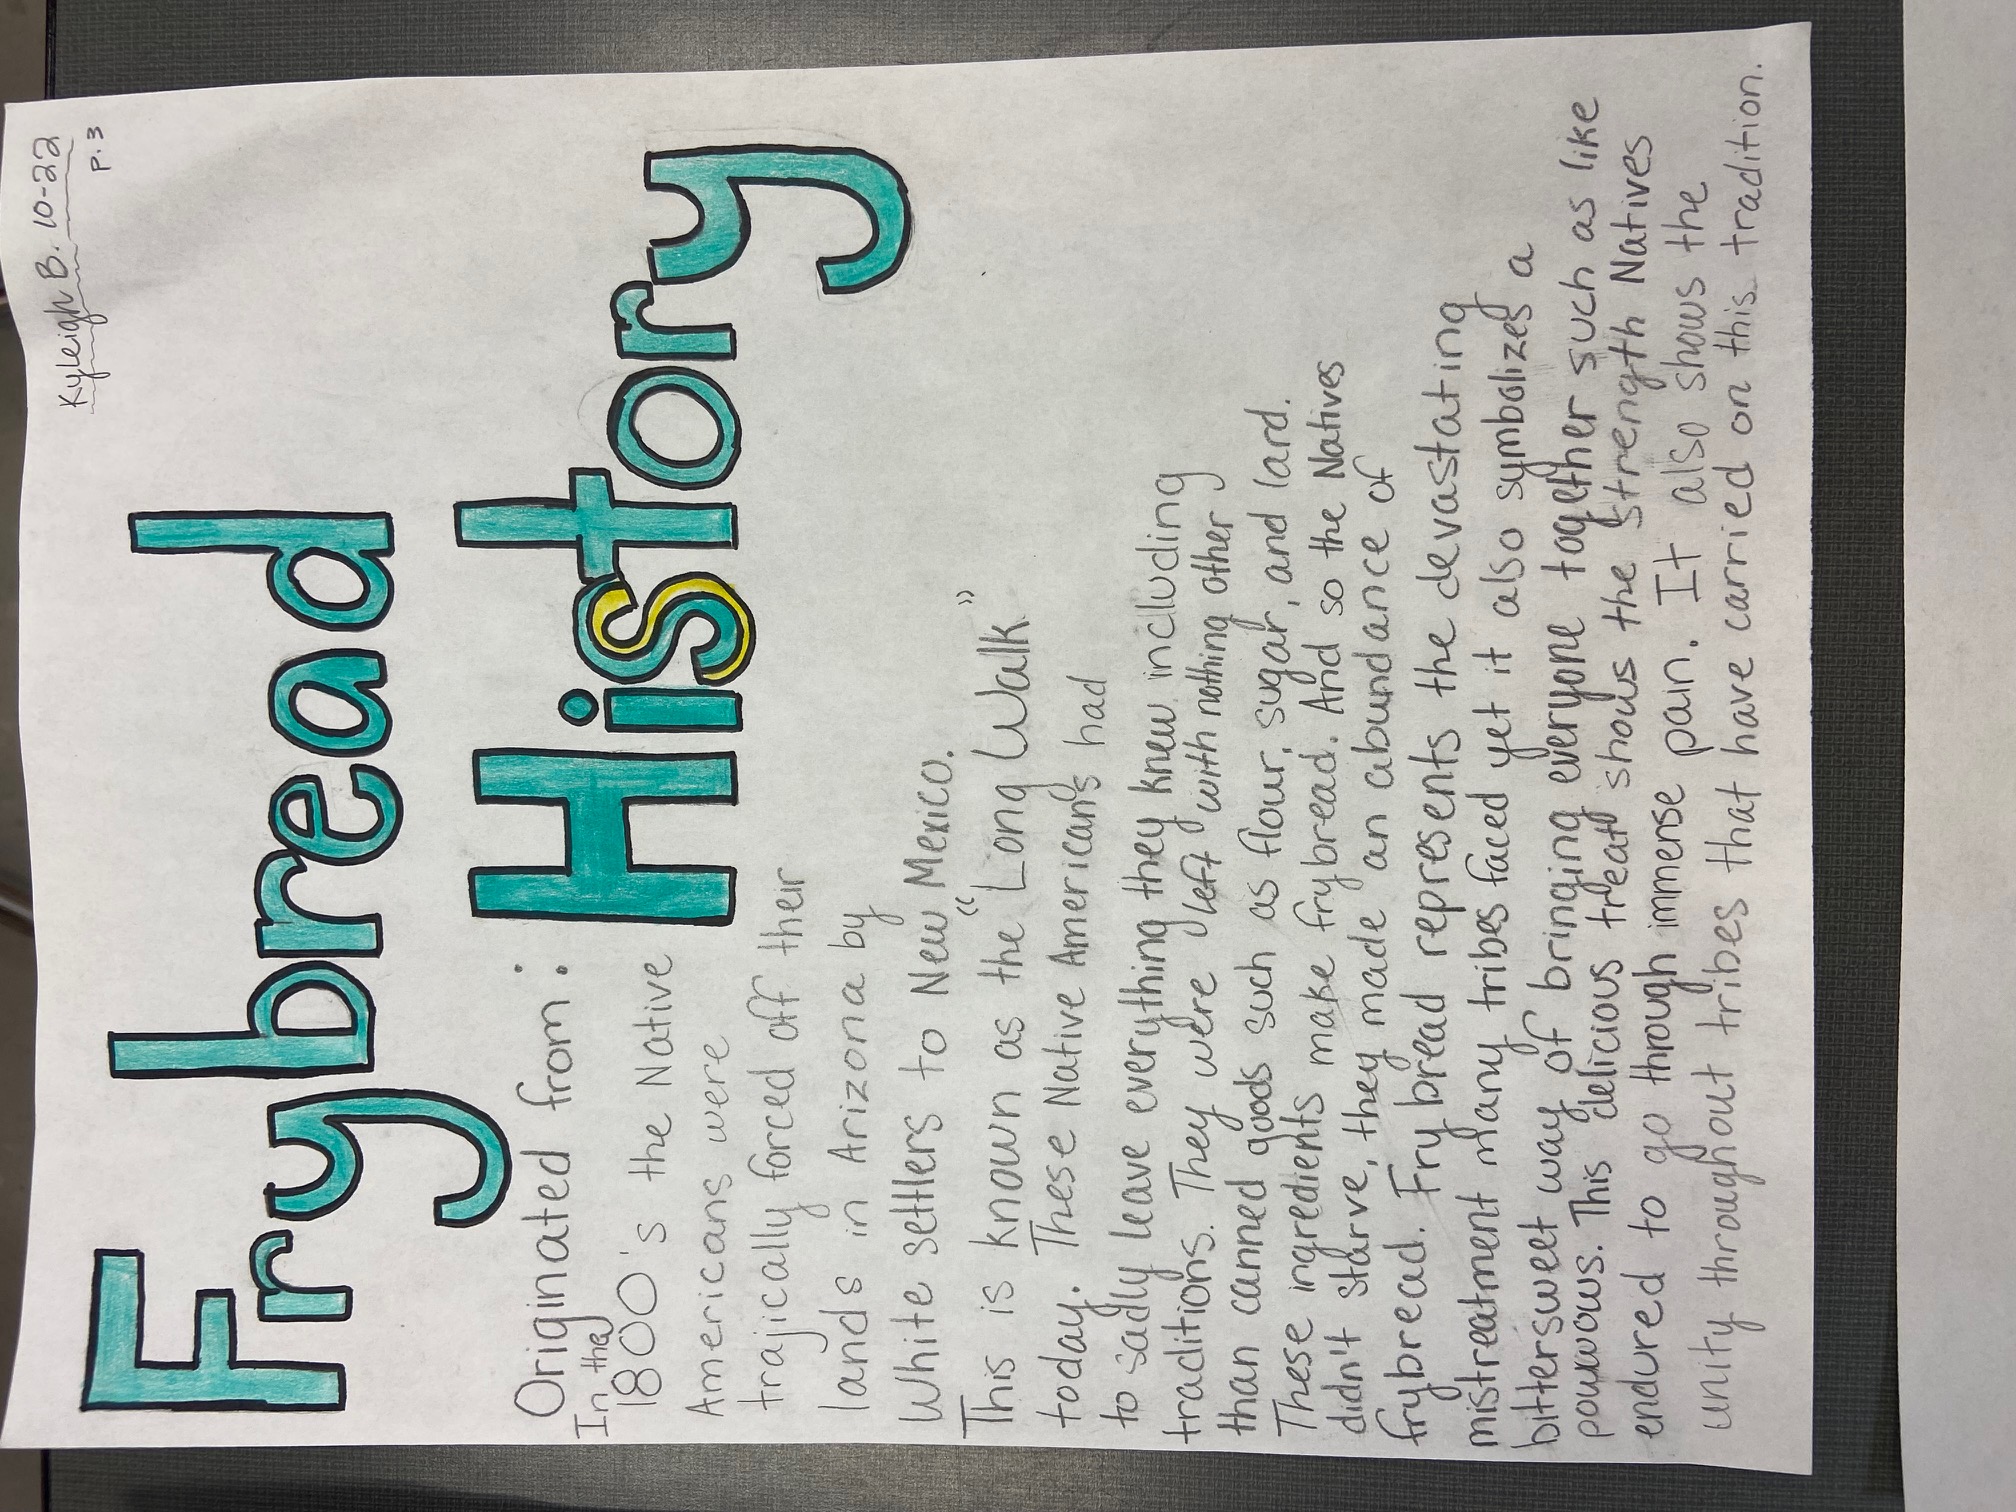 Kyleigh B. 10-22
p. 3
Frybread
History
Originated from:
In the
1800's the Native
Americans were
trajically forced off their
lands in Arizona by
White settlers to New Mexico.
This is known as the "Long Walk"
today. These Native Americans had
to sadly leave everything they knew including
traditions. They were left with nothing other
than canned goods such as flour, sugar, and lard.
These ingredients make frybread. And so the Natives
didn't starve, they made an abundance of
frybread. Fry bread represents the devastating
mistreatment many tribes faced yet it also symbolizes a
bittersweet way of bringing everyone together such as like
powwows. This delicious treat shows the strength Natives
endured to go through immense pain. It also shows the
unity throughout tribes that have carried on this tradition.